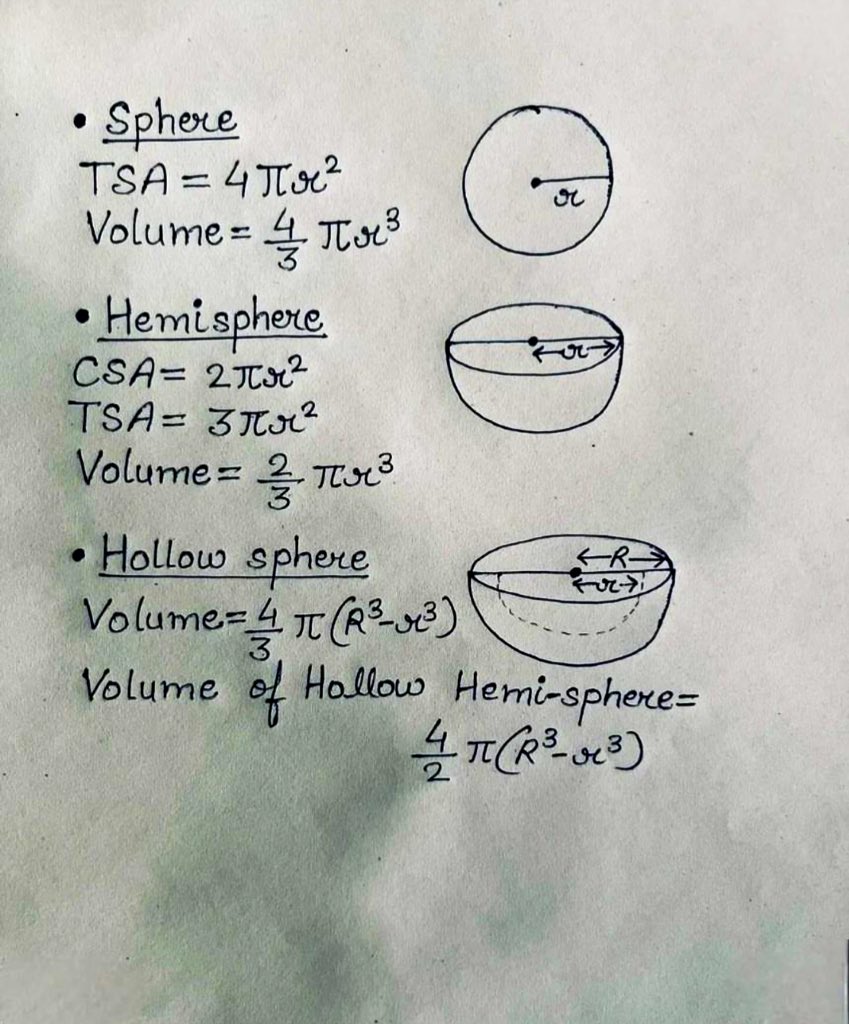 • Sphere
TSA = 4πr²
r
Volume = 4/3 πr³
• Hemisphere
r
CSA = 2πr²
TSA = 3πr²
Volume = 2/3 πr³
• Hollow sphere
R
r
Volume = 4/3 π(R³-r³)
Volume of Hollow Hemi-sphere=
4/2 π(R³-r³)